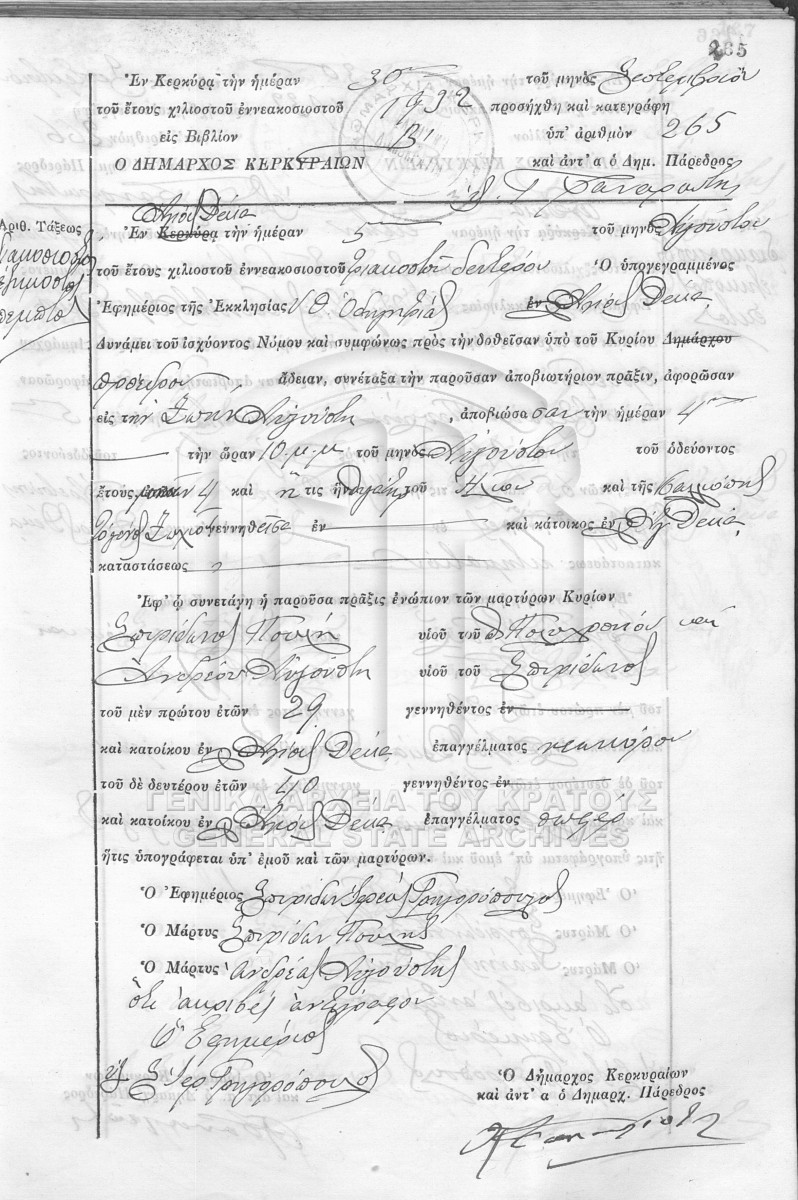 265
Ἐν Κερκύρᾳ τὴν ἡμέραν 30ην τοῦ μηνὸς Σεπτεμβρίου
τοῦ ἔτους χιλιοστοῦ ἐννεακοσιοστοῦ 1932 προσήχθη καὶ κατεγράφη
εἰς Βιβλίον Β' ὑπ' ἀριθμὸν 265
Ο ΔΗΜΑΡΧΟΣ ΚΕΡΚΥΡΑΙΩΝ καὶ ἀντ' α ὁ Δημ. Πάρεδρος
Ἁγίους Δέκα
Ἀριθ. Τάξεως
διακοσιοστὸς
ἑξηκοστὸς
πέμπτος
Ἐν Κερκύρᾳ τὴν ἡμέραν 5 τοῦ μηνὸς Αὐγούστου
τοῦ ἔτους χιλιοστοῦ ἐννεακοσιοστοῦ τριακοστοῦ δευτέρου Ὁ ὑπογεγραμμένος
Ἐφημέριος τῆς Ἐκκλησίας Υ. Θ. Ὁδηγητρίας ἐν Ἁγίους Δέκα
Δυνάμει τοῦ ἰσχύοντος Νόμου καὶ συμφώνως πρὸς τὴν δοθεῖσαν ὑπὸ τοῦ Κυρίου Δημάρχου
Προέδρου ἄδειαν, συνέταξα τὴν παροῦσαν ἀποβιωτήριον πρᾶξιν, ἀφορῶσαν
εἰς την Ζωὴν Αὐγούστη, ἀποβιώσασαν τὴν ἡμέραν 4ην
τὴν ὥραν 10 μ.μ τοῦ μηνὸς Αὐγούστου τοῦ ὁδεύοντος
ἔτους, 4 καὶ ἥτις ἦν θυγάτηρ τοῦ καὶ τῆς
γεννηθεῖσα ἐν καὶ κάτοικος ἐν Ἁγ. Δέκα
καταστάσεως
Ἐφ' ᾧ συνετάγη ἡ παροῦσα πρᾶξις ἐνώπιον τῶν μαρτύρων Κυρίων
Σπυρίδωνος Πουλῆ υἱοῦ τοῦ Πολυχρονίου καὶ
Ἀνδρέου Αὐγούστη υἱοῦ τοῦ Σπυρίδωνος
τοῦ μὲν πρώτου ἐτῶν 29 γεννηθέντος ἐν
καὶ κατοίκου ἐν Ἁγίους Δέκα ἐπαγγέλματος
τοῦ δὲ δευτέρου ἐτῶν 40 γεννηθέντος ἐν
καὶ κατοίκου ἐν Ἁγίους Δέκα ἐπαγγέλματος
ΓΕΝΙΚΑ ΑΡΧΕΙΑ ΤΟΥ ΚΡΑΤΟΥΣ
GENERAL STATE ARCHIVES
ἥτις ὑπογράφεται ὑπ' ἐμοῦ καὶ τῶν μαρτύρων.
Ὁ Ἐφημέριος Σπυρίδων Ἱερεὺς Γρηγορόπουλος
Ὁ Μάρτυς Σπυρίδων Πουλῆς
Ὁ Μάρτυς Ἀνδρέας Αὐγούστης
Ὅτι ἀκριβὲς ἀντίγραφον
Ὁ Ἐφημέριος
Σ. Ἱερ. Γρηγορόπουλος
Ὁ Δήμαρχος Κερκυραίων
καὶ ἀντ' α ὁ Δημαρχ. Πάρεδρος